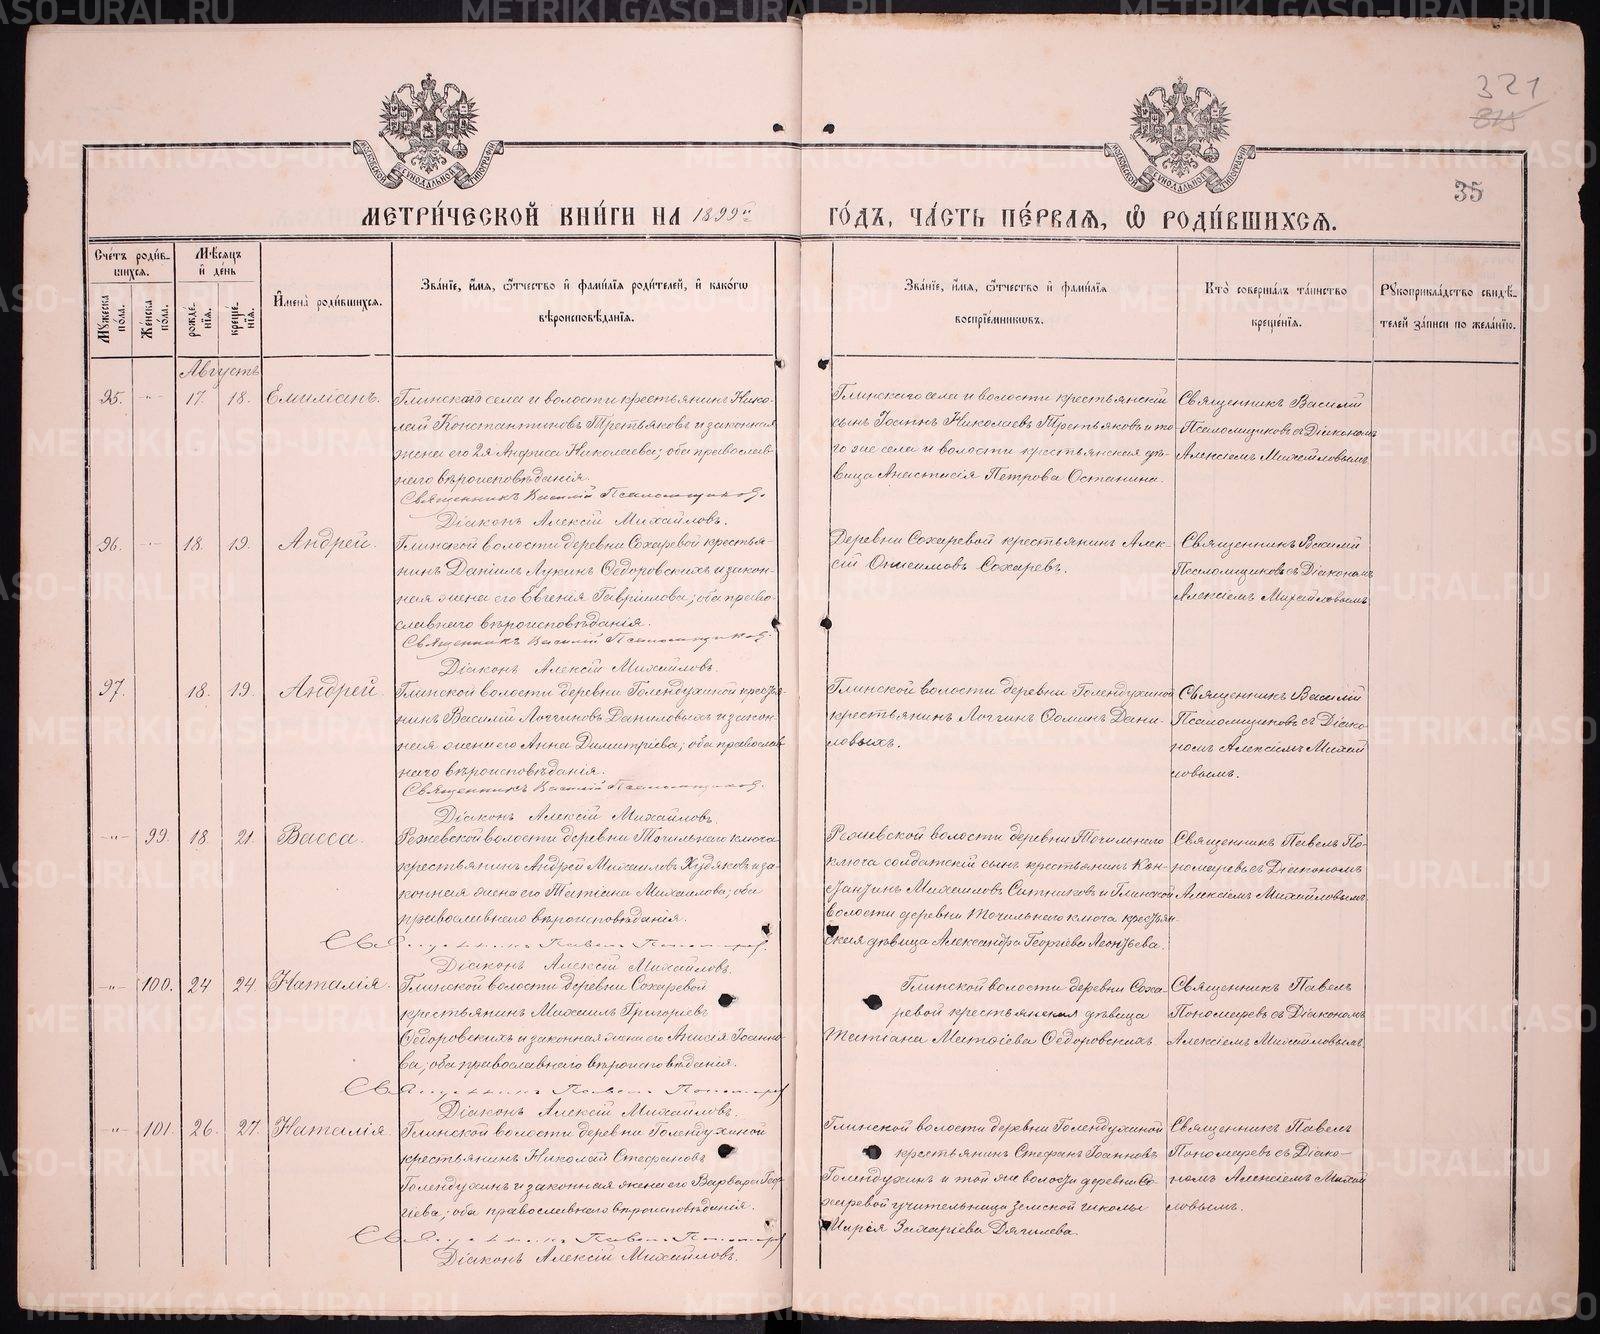 321
875
35
МЕТРИ́ЧЕСКОЙ КНИ́ГИ НА 1899й ГО́ДЪ, ЧА́СТЬ ПЕ́РВАѦ, Ѽ РОДИ́ВШИХСѦ.
Сче́тъ роди́в-
шихся.
Мѣ́сяцъ
и҆ де́нь
Мꙋ́жеска по́ла.
Же́нска по́ла.
рожде́-
нїѧ.
креще́-
нїѧ.
И҆мена̀ роди́вшихся.
Зва́нїе, и҆́мѧ, ѻ҆́тчество и҆ фами́лїѧ роди́телей, и҆ како́гѡ
вѣроисповѣ́данїѧ.
Зва́нїе, и҆́мѧ, ѻ҆́тчество и҆ фами́лїѧ
воспрїе́мниковъ.
Кто̀ соверша́лъ та́инство
креще́нїѧ.
Рꙋкоприкла́дство свидѣ́-
телей за́писи по жела́нїю.
Августъ
95. -"- 17. 18. Емиліанъ.
Глинскаго села и волости крестьянинъ Нико-
лай Константиновъ Третьяковъ и законная
жена его 2я Анфиса Николаева; оба православ-
наго вѣроисповѣданія.
Священникъ Василій Псаломщиковъ.
Діаконъ Алексій Михайловъ.
Глинскаго села и волости крестьянскій
сынъ Іоаннъ Николаевъ Третьяковъ и то-
го же села и волости крестьянская дѣ-
вица Анастасія Петрова Останина.
Священникъ Василій
Псаломщиковъ съ Діакономъ
Алексіемъ Михайловымъ.
96. -"- 18. 19. Андрей.
Глинской волости деревни Сохаревой крестья-
нинъ Даніилъ Лукинъ Ѳедоровскихъ и закон-
ная жена его Евгенія Гавріилова; оба право-
славнаго вѣроисповѣданія.
Священникъ Василій Псаломщиковъ.
Діаконъ Алексій Михайловъ.
Деревни Сохаревой крестьянинъ Алек-
сій Онисимовъ Сохаревъ.
Священникъ Василій
Псаломщиковъ съ Діакономъ
Алексіемъ Михайловымъ
97. 18. 19. Андрей.
Глинской волости деревни Голендухиной крестья-
нинъ Василій Логгиновъ Даниловыхъ и закон-
ная жена его Анна Димитріева; оба православ-
наго вѣроисповѣданія.
Священникъ Василій Псаломщиковъ.
Діаконъ Алексій Михайловъ.
Глинской волости деревни Голендухиной
крестьянинъ Логгинъ Ѳоминъ Дани-
ловыхъ.
Священникъ Василій
Псаломщиковъ съ Діако-
номъ Алексіемъ Михай
ловымъ.
-"- 99. 18. 21. Васса.
Режевской волости деревни Точильнаго ключа
крестьянинъ Андрей Михаиловъ Худяковъ и за-
конная жена его Татіана Михаилова; оба
православнаго вѣроисповѣданія.
Священникъ Павелъ Пономаревъ.
Діаконъ Алексій Михайловъ.
Режевской волости деревни Точильнаго
ключа солдатскій сынъ крестьянинъ Кон-
стантинъ Михаиловъ Ситниковъ и Глинской
волости деревни Точильнаго ключа крестьян-
ская дѣвица Александра Георгіева Леонтьева.
Священникъ Павелъ По-
номаревъ съ Діакономъ
Алексіемъ Михайловымъ.
-"- 100. 24 24. Наталія.
Глинской волости деревни Сохаревой
крестьянинъ Михаилъ Григоріевъ
Ѳедоровскихъ и законная жена его Анисія Іоанно-
ва; оба православнаго вѣроисповѣданія.
Священникъ Павелъ Пономаревъ
Діаконъ Алексій Михайловъ.
Глинской волости деревни Соха-
ревой крестьянская дѣвица
Татіана Матѳіева Ѳедоровскихъ
Священникъ Павелъ
Пономаревъ съ Діакономъ
Алексіемъ Михайловымъ.
-"- 101. 26. 27. Наталія.
Глинской волости деревни Голендухиной
крестьянинъ Николай Стефановъ
Голендухинъ и законная жена его Варвара Геор-
гіева; оба православнаго вѣроисповѣданія.
Священникъ Павелъ Пономаревъ
Діаконъ Алексій Михайловъ.
Глинской волости деревни Голендухиной
крестьянинъ Стефанъ Іоанновъ
Голендухинъ и той же волости деревни Со-
харевой учительница земской школы
Марія Захаріева Дягилева.
Священникъ Павелъ
Пономаревъ съ Діако-
номъ Алексіемъ Михай
ловымъ.
METRIKI.GASO-URAL.RU